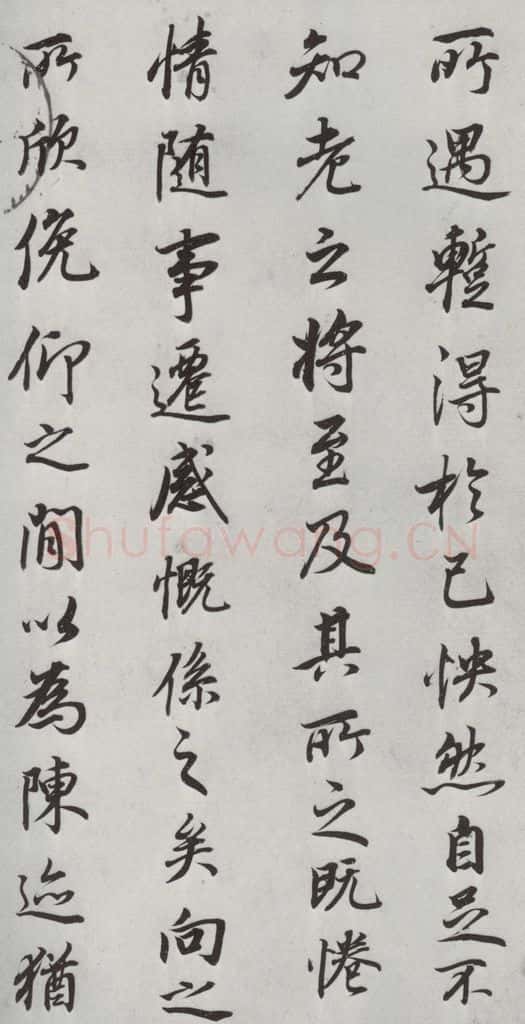 所遇蹔得於己怏然自足不
知老之將至及其所之既惓
情随事遷感慨係之矣向之
所欣俛仰之間以為陳迹猶
Shufawang.CN